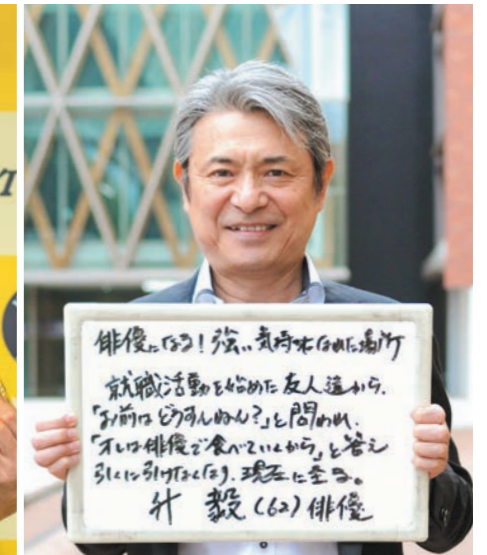 俳優になる!強い気持ちになれた場所
就職活動を始めた友人達から、
「お前はどうすんねん?」と問われ、
「オレは俳優で食べていくから」と答え
引くに引けなくなり、現在に至る。
升 毅(62)俳優